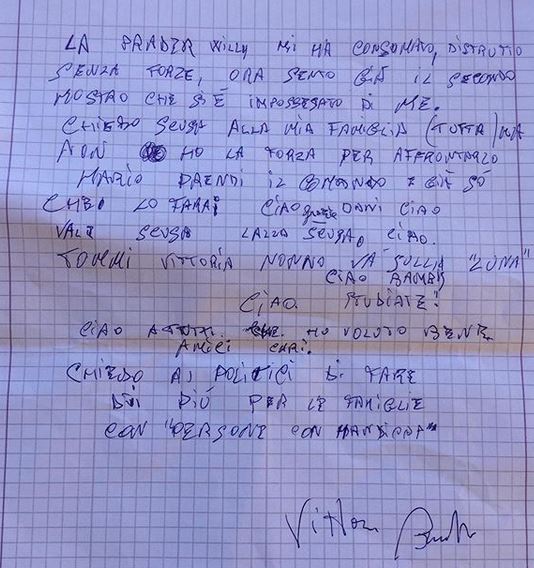 LA PRADER WILLY MI HA CONSUMATO, DISTRUTTO
SENZA FORZE, ORA SENTO GIÀ IL SECONDO
MOSTRO CHE SI È IMPOSSESSATO DI ME.
CHIEDO SCUSA ALLA MIA FAMIGLIA (TUTTA) MA
NON HO LA FORZA PER AFFRONTARLO
MARIO PRENDI IL COMANDO E GIÀ SÒ
CHE LO FARAI CIAO grazie DANI CIAO
VALE SCUSA LAZZA SCUSA, CIAO.
TOMMI VITTORIA NONNO VÀ SULLA "LUNA"
CIAO BAMBI
CIAO STUDIATE!
CIAO A TUTTI. HO VOLUTO BENE
AMICI CARI.
CHIEDO AI POLITICI DI FARE
DI PIÙ PER LE FAMIGLIE
CON "PERSONE CON HANDICAP"